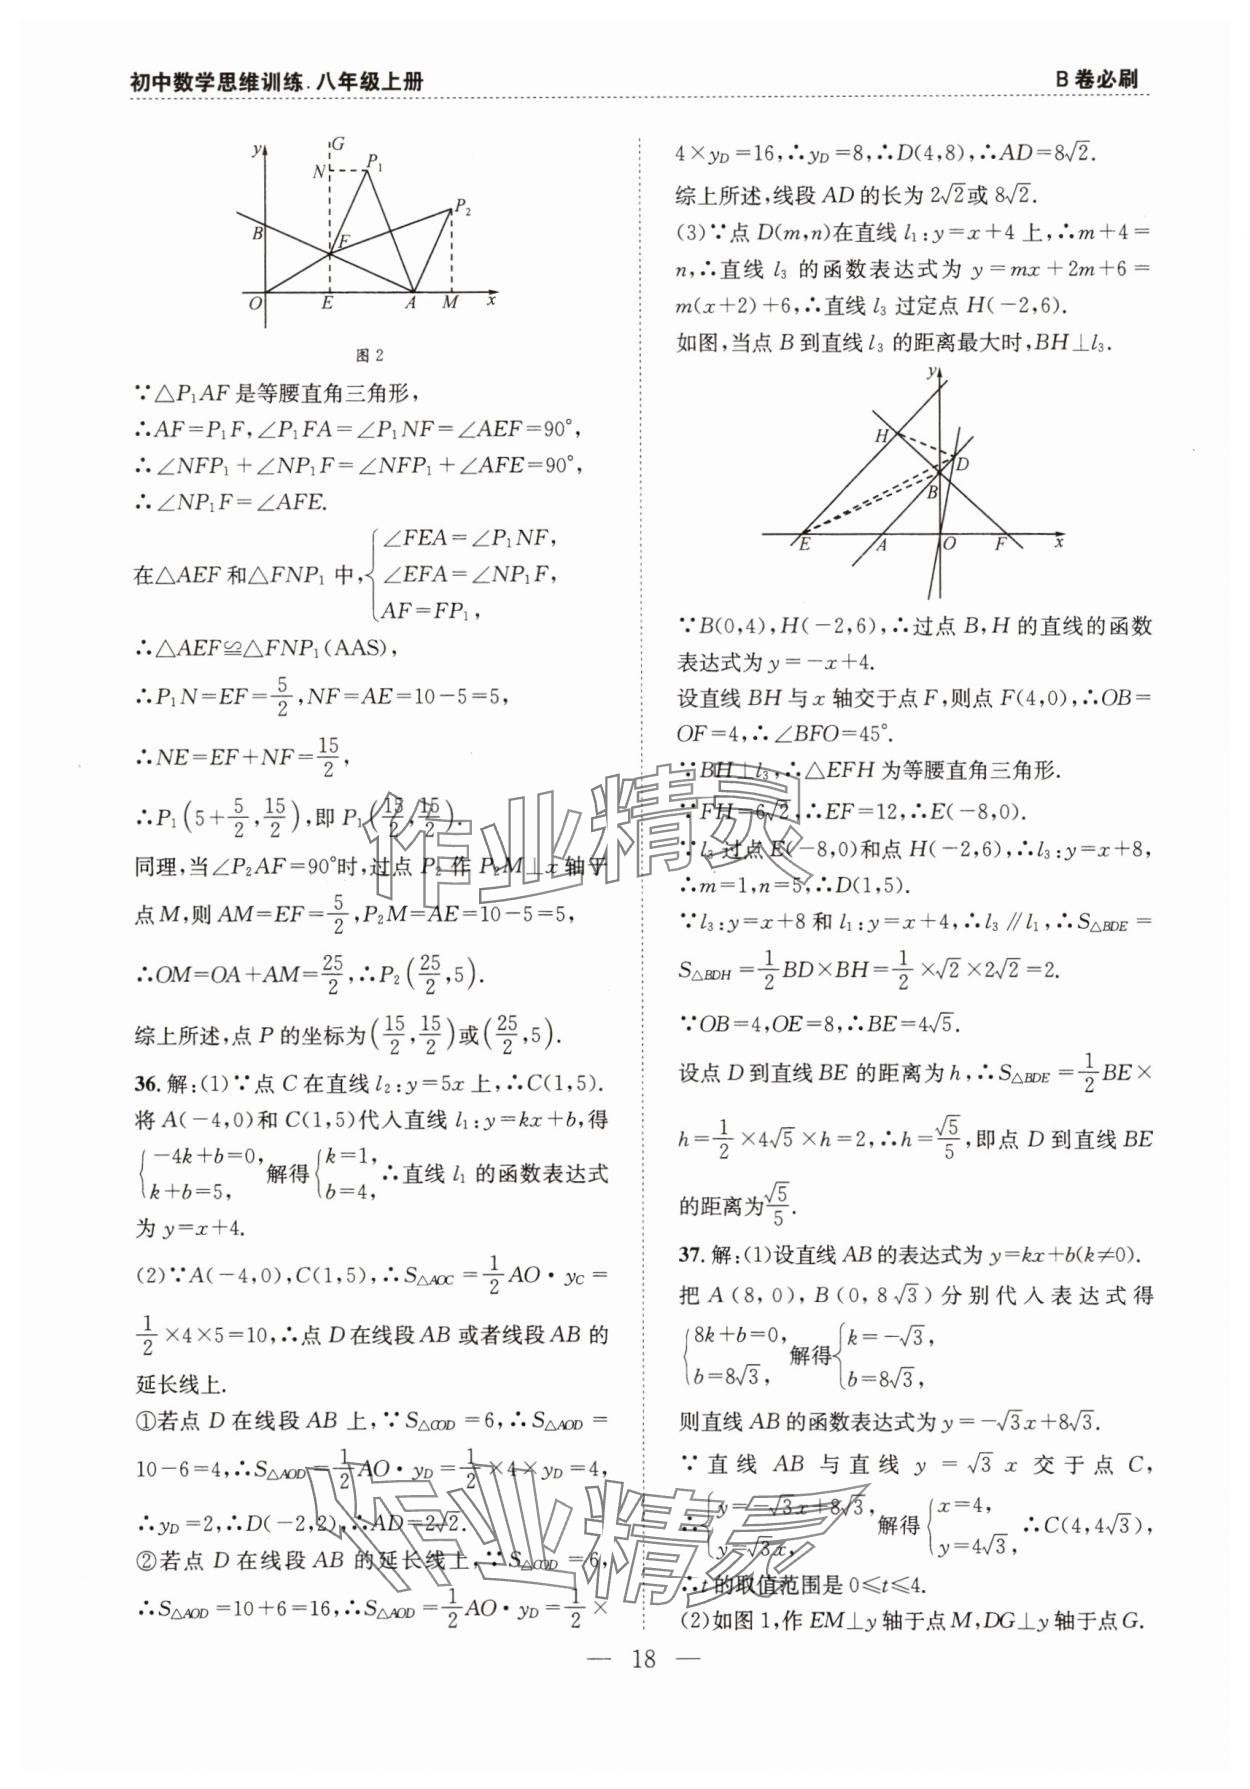 初中数学思维训练.八年级上册
B卷必刷
y
G
N
P₁
P₂
B
F
O
E
A
M
x
图2
∵△P₁AF是等腰直角三角形，
∴AF=P₁F,∠P₁FA=∠P₁NF=∠AEF=90°,
∴∠NFP₁+∠NP₁F=∠NFP₁+∠AFE=90°,
∴∠NP₁F=∠AFE.
在△AEF和△FNP₁中,{∠FEA=∠P₁NF,
∠EFA=∠NP₁F,
AF=FP₁,
∴△AEF≌△FNP₁(AAS),
∴P₁N=EF=5/2,NF=AE=10-5=5,
∴NE=EF+NF=15/2,
∴P₁(5+5/2,15/2),即P₁(15/2,15/2).
同理,当∠P₂AF=90°时,过点P₂作P₂M⊥x轴于
点M,则AM=EF=5/2,P₂M=AE=10-5=5,
∴OM=OA+AM=25/2,∴P₂(25/2,5).
综上所述,点P的坐标为(15/2,15/2)或(25/2,5).
36.解:(1)∵点C在直线l₂:y=5x上,∴C(1,5).
将A(-4,0)和C(1,5)代入直线l₁:y=kx+b,得
{-4k+b=0, k+b=5, 解得{k=1, b=4, ∴直线l₁的函数表达式
为y=x+4.
(2)∵A(-4,0),C(1,5),∴S△AOC=1/2AO·yC=
1/2×4×5=10,∴点D在线段AB或者线段AB的
延长线上.
①若点D在线段AB上,∵S△COD=6,∴S△AOD=
10-6=4,∴S△AOD=1/2AO·yD=1/2×4×yD=4,
∴yD=2,∴D(-2,2),∴AD=2√2.
②若点D在线段AB的延长线上,∵S△COD=6,
∴S△AOD=10+6=16,∴S△AOD=1/2AO·yD=1/2×
4×yD=16,∴yD=8,∴D(4,8),∴AD=8√2.
综上所述,线段AD的长为2√2或8√2.
(3)∵点D(m,n)在直线l₁:y=x+4上,∴m+4=
n,∴直线l₃的函数表达式为y=mx+2m+6=
m(x+2)+6,∴直线l₃过定点H(-2,6).
如图,当点B到直线l₃的距离最大时,BH⊥l₃.
y
H
D
B
E
A
O
F
x
∵B(0,4),H(-2,6),∴过点B,H的直线的函数
表达式为y=-x+4.
设直线BH与x轴交于点F,则点F(4,0),∴OB=
OF=4,∴∠BFO=45°.
∵BH⊥l₃,∴△EFH为等腰直角三角形.
∵FH=6√2,∴EF=12,∴E(-8,0).
∵l₃过点E(-8,0)和点H(-2,6),∴l₃:y=x+8,
∴m=1,n=5,∴D(1,5).
∵l₃:y=x+8和l₁:y=x+4,∴l₃∥l₁,∴S△BDE=
S△BDH=1/2BD×BH=1/2×√2×2√2=2.
∵OB=4,OE=8,∴BE=4√5.
设点D到直线BE的距离为h,∴S△BDE=1/2BE×
h=1/2×4√5×h=2,∴h=√5/5,即点D到直线BE
的距离为√5/5.
37.解:(1)设直线AB的表达式为y=kx+b(k≠0).
把A(8,0),B(0,8√3)分别代入表达式得
{8k+b=0, b=8√3, 解得{k=-√3, b=8√3,
则直线AB的函数表达式为y=-√3x+8√3.
∵直线AB与直线y=√3x交于点C,
∴{y=-√3x+8√3, y=√3x, 解得{x=4, y=4√3, ∴C(4,4√3),
∴t的取值范围是0⩽t⩽4.
(2)如图1,作EM⊥y轴于点M,DG⊥y轴于点G.
作业精灵
作业精灵
— 18 —